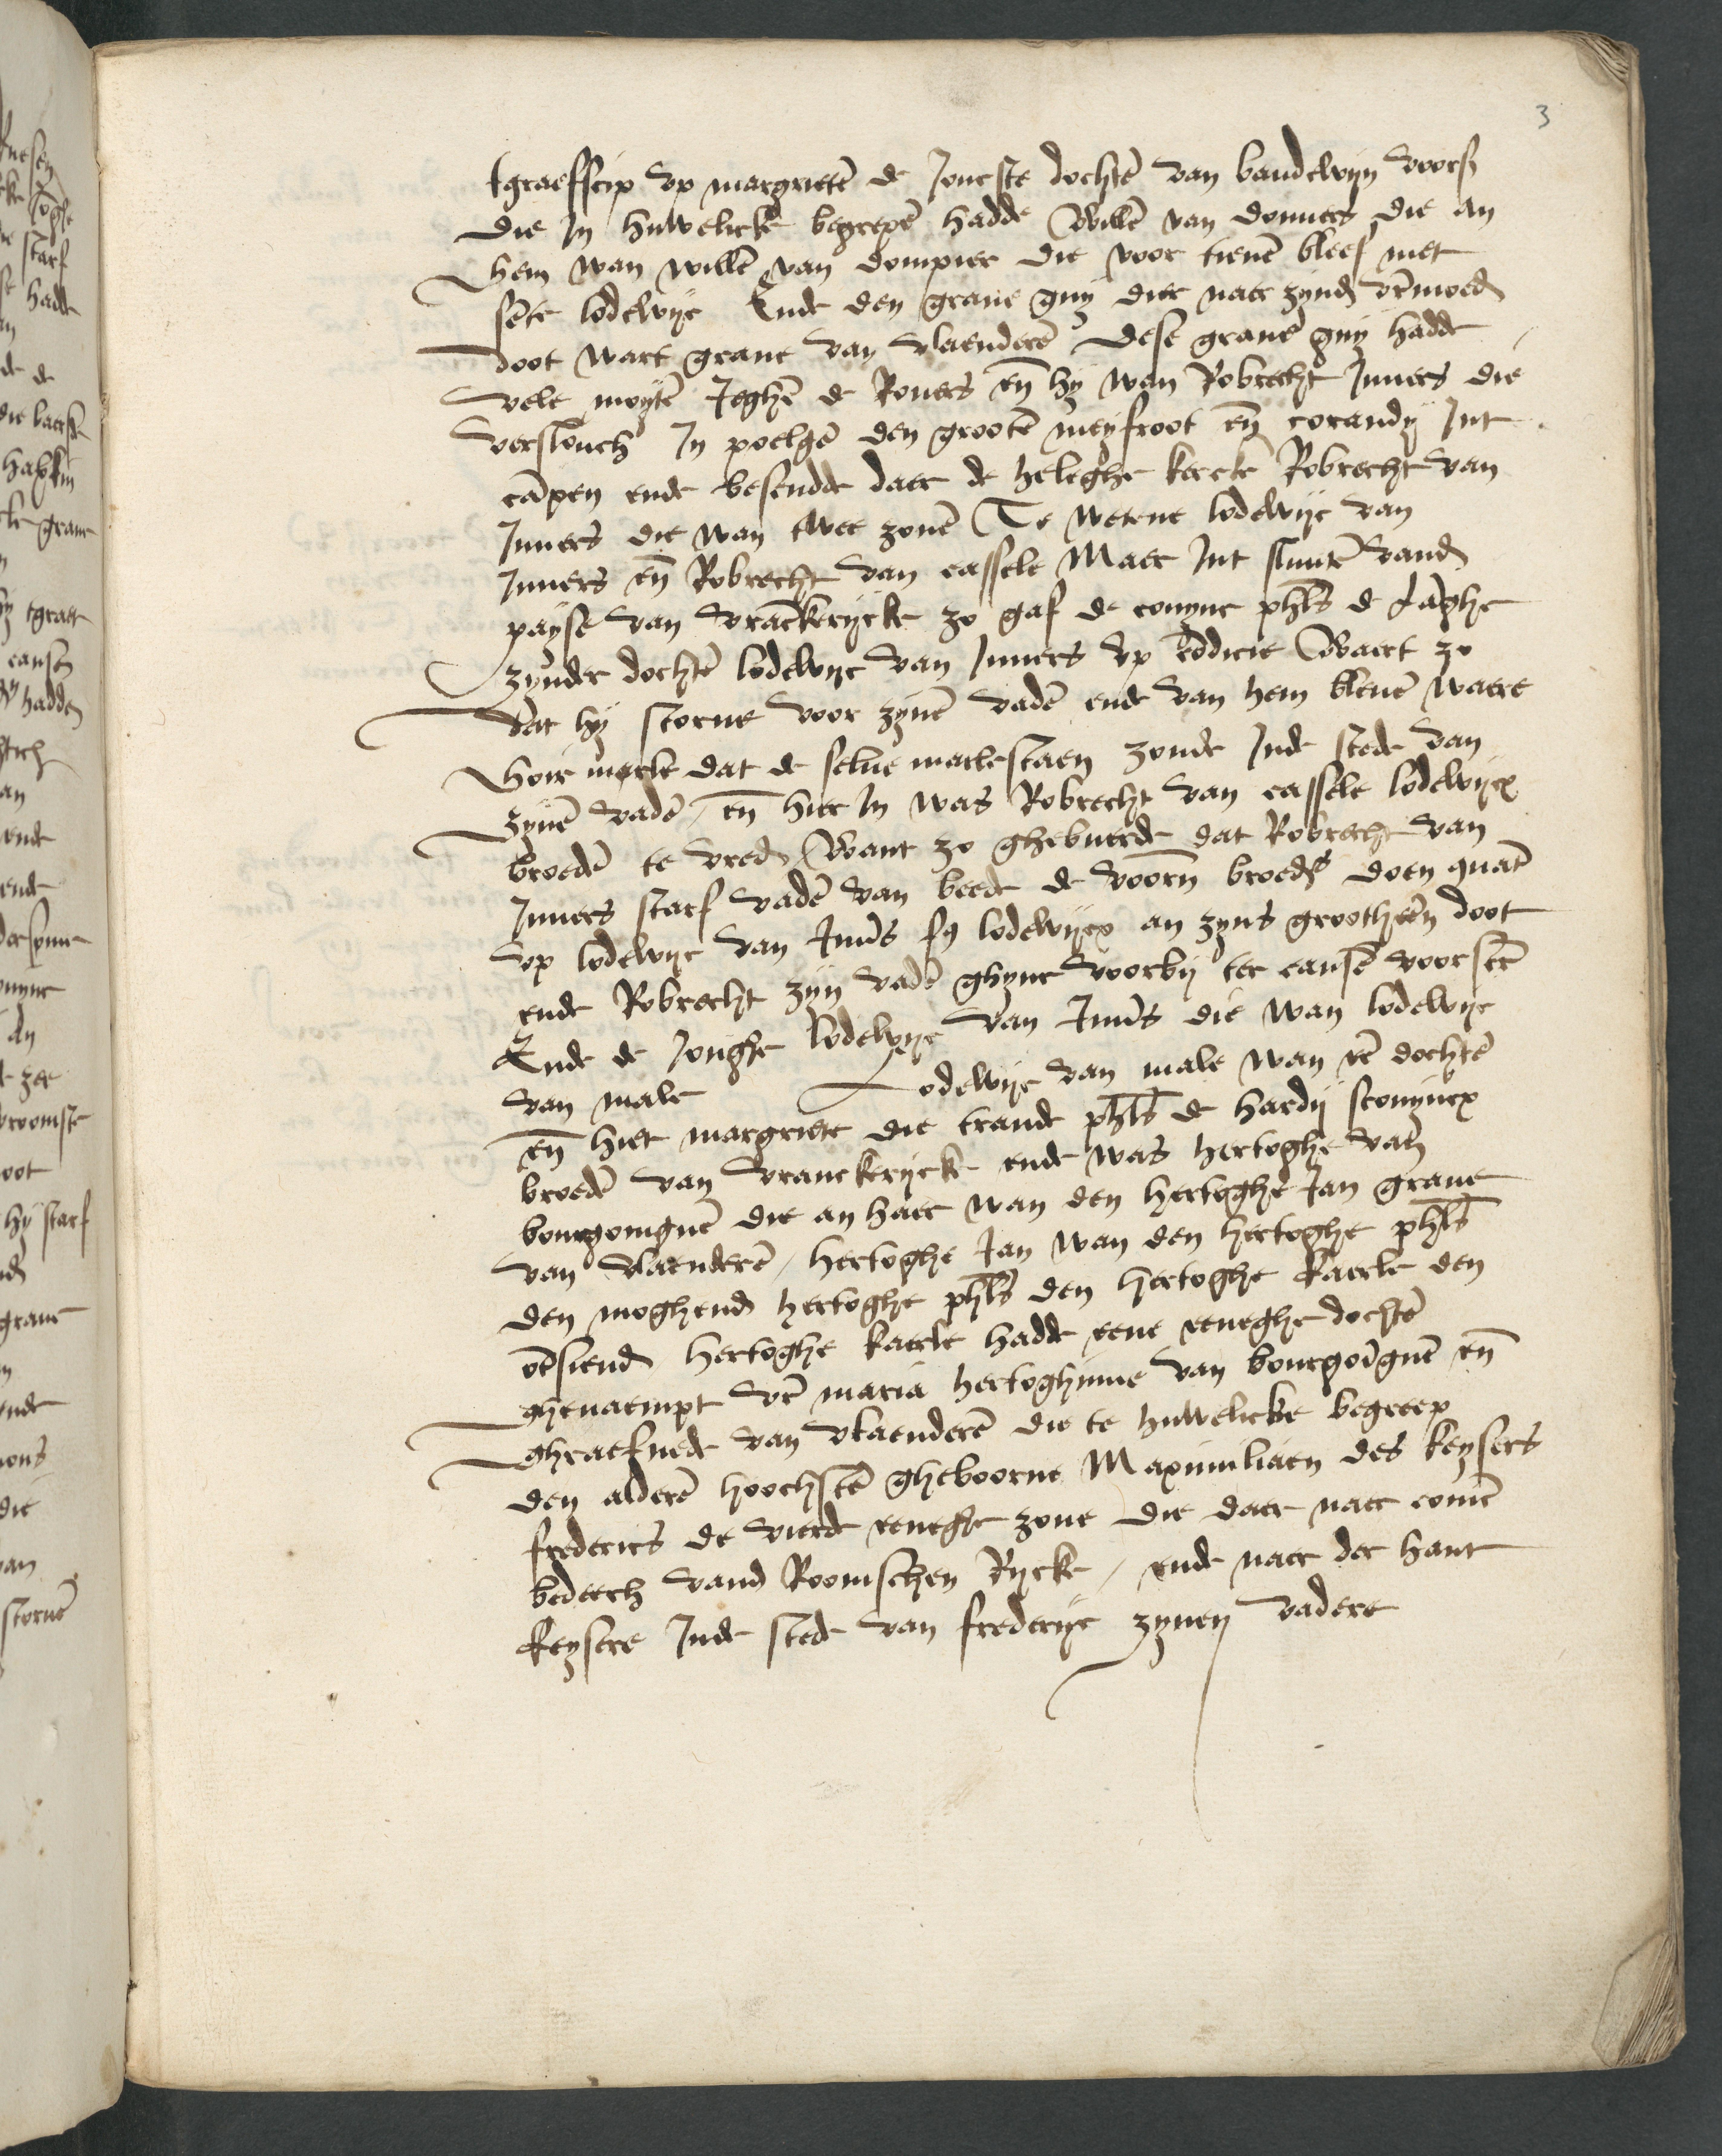 3
tgraefscip vp margrietē de Joncste dochtē van baudewijn voors
die in huwelicke begrepē hadde Willē van donuers die an
hem wan willē van dompier die voor tienē bleef met
sente lodewijc Ende den graue guy die naer zijnd̄ vrēmoed̄
doot wart graue van vlaenderē dese graue guy hadde
vele moytē Jeghē de Rouers en̄ hij wan Robrecht Juuers die
verslouch In poelgē den grootē meyfroot en̄ corandy Int
cāpen ende bescudde daer de heleghe kercke Robrecht van
Juuers die wan twee zonē Te wetene lodewijc van
Juuers en̄ Robrecht van cassele Maer Int slutē vand̄
payse van vrāckerijcke zo gaf de conync phls de Lāghe
zynder dochtē lodewijc van Juuers vp cōdicie Waert zo
dat hij storue voor zynē vadē ende van hem bleuē waere
hoir marle dat de selue marle staen zoude Inde stede van
zynē vadē / en̄ hier In was Robrecht van cassele lodewijcx
broedē te vred̄ Want zo ghebuerde dat Robrecht van
Juuers starf vadē van beede de voorn̄ broedˢ doen quāt
vp lodewijc van Juuˢs fˢ lodewijcx an zyns grootheēn doot
ende Robrecht zijn vadē ghync voorby ter causē voorscrē
Ende de Jonghe lodewijc van Juuˢs die wan lodewijc
van male Lodewijc van male wan eē dochtē
en̄ hiet margriete die traude phls de hardij sconyncx
broedē van vranckerijcke ende was hertoghe van
bourgoingnē die an haer wan den hertoghe Jan graue
van vlaenderē / hertoghe Jan wan den hertoghe phls
den moghend̄ hertoghe phls den hertoghe kaerle den
ōtsiend̄ hertoghe kaerle hadde eene eeneghe dochtē
ghenaempt vrē maria hertoghinne van bourgoīgnē en̄
ghraefnede van vlaenderē die te huwelicke begreep
den alderē hoochstē gheboorne Maximiliaen des keysers
frederics de vierde eeneghe zone die daer naer conīc
bedeech vand̄ Roomschen Rijcke / ende naer der hant
keysere Inde stede van frederijc zynen vadere